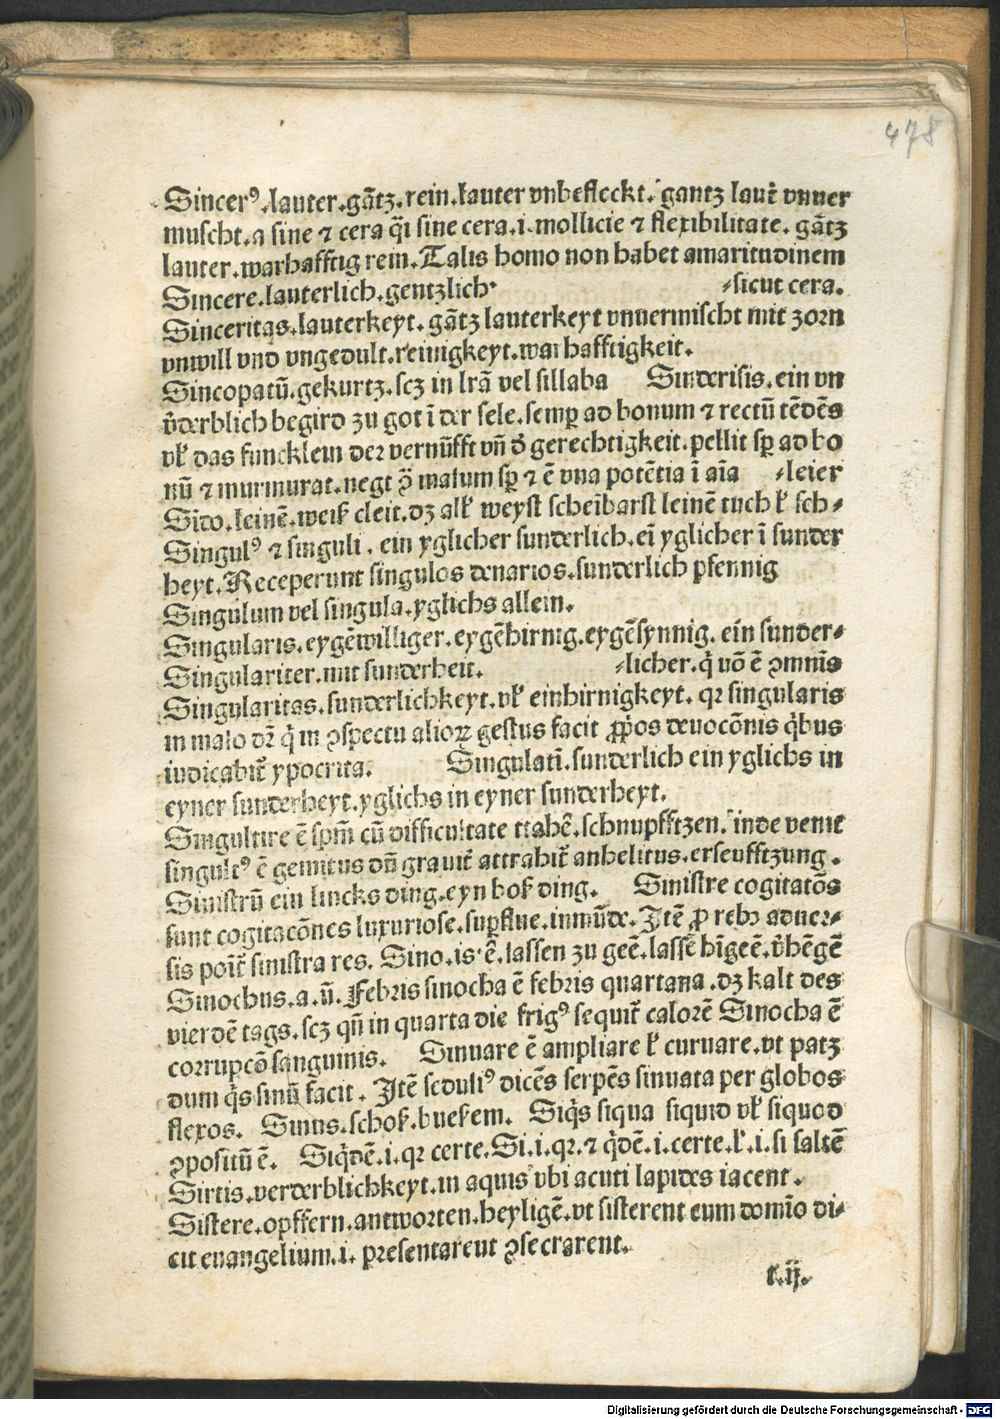 478
Sincerꝰ.lauter.gãtz.rein.lauter vnbefleckt. gantz lauť vnuer
muscht.a sine ⁊ cera q̃i sine cera.i.mollicie ⁊ flexibilitate. gãtz
lauter.warhafftig rein.Talis homo non habet amaritudinem
Sincere.lauterlich.gentzlich⸗sicut cera.
Sinceritas.lauterkeyt. gãtz lauterkeyt vnuermischt mit zorn
vnwill vnd vngedult.reinigkeyt.warhafftigkeit.
Sincopatũ.gekurtz.scz in lrã vel sillaba Sinderisis.ein vn
v̈derblich begird zu got ĩ der sele.semꝑ ad bonum ⁊ rectũ tẽdẽs
vľ das funcklein der vernũfft vñ ď gerechtigkeit.pellit sꝑ ad bo
nũ ⁊ murmurat.negt ꝓ malum sꝑ ⁊ ẽ vna potẽtia ĩ aĩa ⸗leier
Sĩdo.leinẽ.weiß cleit.dz alľ weyst scheĩbarst leinẽ tuch ľ sch⸗
Singulꝰ ⁊ singuli. ein yglicher sunderlich.eĩ yglicher ĩ sunder
heyt.Receperunt singulos denarios.sunderlich pfennig
Singulum vel singula.yglichs allein.
Singularis.eygẽwilliger.eygẽhirnig.eygẽsynnig. ein sunder⸗
Singulariter.mit sunderheit. ⸗licher.q̇ uõ ẽ ꝯmnĩs
Singularitas.sunderlichkeyt.vľ einhirnigkeyt. qꝛ singularis
in malo dꝛ̃ q̇ in ꝯspectu alioꝝ gestus facit ꝓp̃os deuocõnis q̇bus
iudicabiť ypocrita. Singulatĩ.sunderlich ein yglichs in
eyner sunderheyt.yglichs in eyner sunderheyt.
Singultire ẽ spm̃ cũ difficultate trahẽ.schnupfftzen. inde venit
singultꝰ ẽ gemitus dũ grauiť attrahiť anhelitus.erseufftzung.
Sinistrũ ein lincks ding.eyn boß ding. Sinistre cogitatõs
sunt cogitacõnes luxuriose.suꝑflue.inmũde.Jtẽ ꝓ rebꝫ aduer⸗
sis poiť sinistra res. Sino.is.ẽ.lassen zu geẽ.lassẽ hĩgeẽ.v̈hẽgẽ
Sinochus.a.ũ.Febris sinocha ẽ febris quartana.dz kalt des
vierdẽ tags.scz qñ in quarta die frigꝰ sequiť calorẽ Sinocha ẽ
corrupcõ sanguinis. Sinuare ẽ ampliare ľ curuare.vt patz
dum q̇s sinũ facit. Jtẽ seduliꝰ dicẽs serpẽs sinuata per globos
flexos. Sinus.schoß.bueßem. Siq̇s siqua siquid vľ siquod
ꝯpositũ ẽ. Siq̇dẽ.i.qꝛ certe.Si.i.qꝛ.⁊ q̇dẽ.i.certe.ľ.i.si saltẽ
Sirtis.verderblichkeyt.in aquis vbi acuti lapides iacent.
Sistere.opffern.antworten.heyligẽ.vt sisterent eum domĩo di⸗
cit euangelium.i. presentarent ꝯsecrarent.
r.ij.
Digitalisierung gefördert durch die Deutsche Forschungsgemeinschaft - DFG